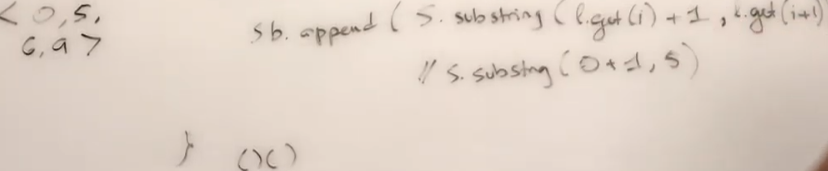 < 0, 5,
6, 9 >
sb. append ( S. substring ( l.get(i) + 1 , l.get (i+1)
// S. substng ( 0 + 1, 5 )
} ()()